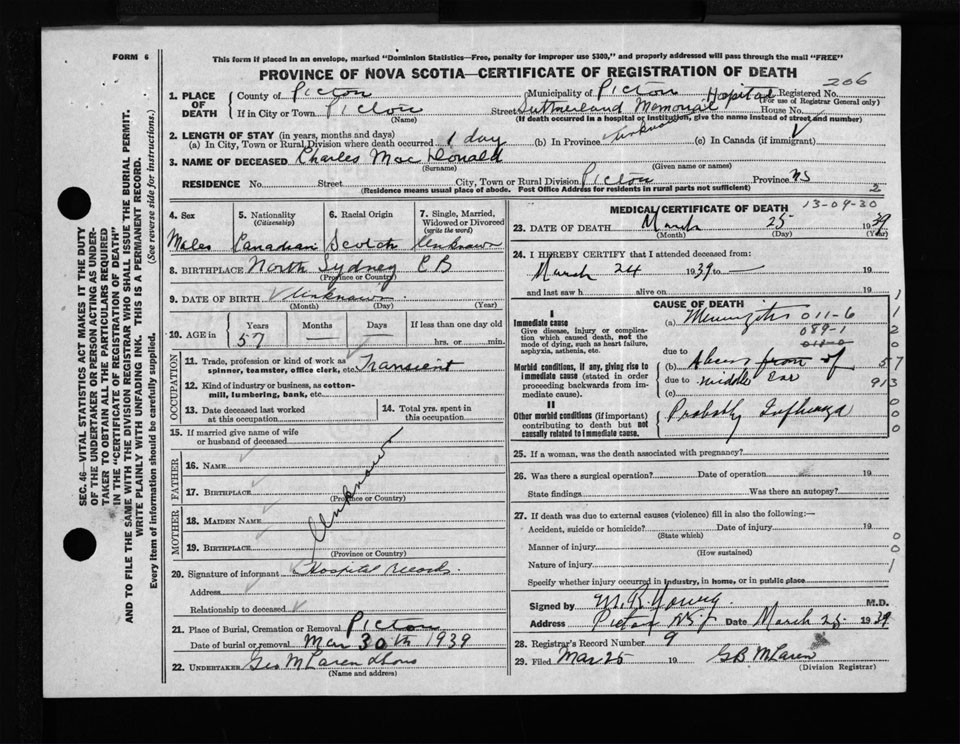 FORM 6
This form if placed in an envelope, marked "Dominion Statistics—Free, penalty for improper use $300," and properly addressed will pass through the mail "FREE"
PROVINCE OF NOVA SCOTIA—CERTIFICATE OF REGISTRATION OF DEATH
206
1. PLACE OF DEATH
County of Pictou Municipality of Pictou Registered No.
(For use of Registrar General only)
If in City or Town Pictou Street Sutherland Memorial Hospital House No.
(Name) (If death occurred in a hospital or institution, give the name instead of street and number)
2. LENGTH OF STAY (in years, months and days)
(a) In City, Town or Rural Division where death occurred 1 day (b) In Province Unknown (c) In Canada (if immigrant) ✓
3. NAME OF DECEASED Charles MacDonald
(Surname) (Given name or names)
RESIDENCE No. Street City, Town or Rural Division Pictou Province NS
(Residence means usual place of abode. Post Office Address for residents in rural parts not sufficient) 2
4. Sex 5. Nationality (Citizenship) 6. Racial Origin 7. Single, Married, Widowed or Divorced (write the word)
Male Canadian Scotch Unknown
8. BIRTHPLACE North Sydney CB
(Province or Country)
9. DATE OF BIRTH Unknown
(Month) (Day) (Year)
10. AGE in Years Months Days If less than one day old
57 — — hrs. or min.
OCCUPATION
11. Trade, profession or kind of work as spinner, teamster, office clerk, etc. Transient
12. Kind of industry or business, as cotton-mill, lumbering, bank, etc.
13. Date deceased last worked at this occupation
14. Total yrs. spent in this occupation
15. If married give name of wife or husband of deceased
FATHER
16. NAME
17. BIRTHPLACE
(Province or Country)
MOTHER
18. MAIDEN NAME
19. BIRTHPLACE
(Province or Country)
Unknown
20. Signature of informant Hospital records.
Address
Relationship to deceased
21. Place of Burial, Cremation or Removal Pictou
Date of burial or removal Mar 30th 1939
22. UNDERTAKER Geo McLaren & Sons
(Name and address)
MEDICAL CERTIFICATE OF DEATH 13-09-30
23. DATE OF DEATH March 25 1939
(Month) (Day) (Year)
24. I HEREBY CERTIFY that I attended deceased from:
March 24 1939 to — 19
and last saw h alive on 19
CAUSE OF DEATH
I
Immediate cause
Give disease, injury or complication which caused death, not the mode of dying, such as heart failure, asphyxia, asthenia, etc.
(a) Meningitis 011-6
089-1
due to
Morbid conditions, if any, giving rise to immediate cause (stated in order proceeding backwards from immediate cause).
(b) Abcess from of
due to middle ear
(c)
II
Other morbid conditions (if important) contributing to death but not causally related to immediate cause.
Probably Influenza
1
1
2
0
57
913
0
0
0
25. If a woman, was the death associated with pregnancy?
26. Was there a surgical operation? Date of operation 19
State findings Was there an autopsy?
27. If death was due to external causes (violence) fill in also the following:—
Accident, suicide or homicide? Date of injury 19
(State which)
Manner of injury
(How sustained)
Nature of injury
0
0
1
Specify whether injury occurred in industry, in home, or in public place
Signed by M. R. Young M.D.
Address Pictou N.S. Date March 25 1939
28. Registrar's Record Number 9
29. Filed Mar 25 19 GB McLaren
(Division Registrar)
SEC. 46—VITAL STATISTICS ACT MAKES IT THE DUTY
OF THE UNDERTAKER OR PERSON ACTING AS UNDER-
TAKER TO OBTAIN ALL THE PARTICULARS REQUIRED
IN THE "CERTIFICATE OF REGISTRATION OF DEATH"
AND TO FILE THE SAME WITH THE DIVISION REGISTRAR WHO SHALL ISSUE THE BURIAL PERMIT.
WRITE PLAINLY WITH UNFADING INK. THIS IS A PERMANENT RECORD.
Every item of information should be carefully supplied. (See reverse side for instructions.)